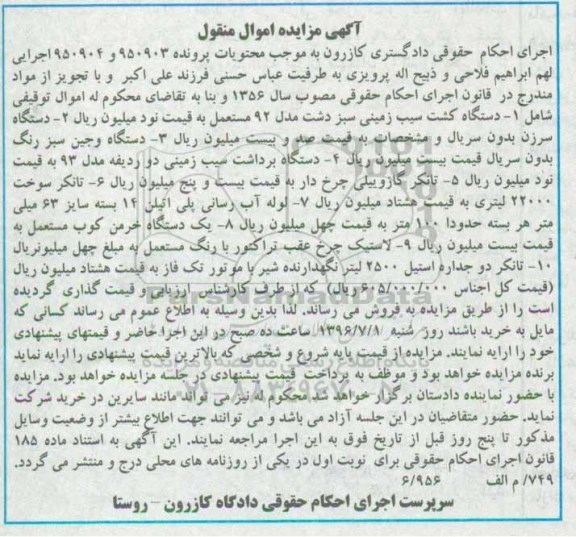 آگهی مزایده اموال منقول
اجرای احکام حقوقی دادگستری کازرون به موجب محتویات پرونده ۹۵۰۹۰۳ و ۹۵۰۹۰۴ اجرایی
لهم ابراهیم فلاحی و ذبیح اله پرویزی به طرفیت عباس حسنی فرزند علی اکبر و با تجویز از مواد
مندرج در قانون اجرای احکام حقوقی مصوب سال ۱۳۵۶ و بنا به تقاضای محکوم له اموال توقیفی
شامل ۱- دستگاه کشت سیب زمینی سبز دشت مدل ۹۲ مستعمل به قیمت نود میلیون ریال ۲- دستگاه
سرزن بدون سریال و مشخصات به قیمت صد و بیست میلیون ریال ۳- دستگاه وجین سبز رنگ
بدون سریال قیمت بیست میلیون ریال ۴- دستگاه برداشت سیب زمینی دو ردیفه مدل ۹۳ به قیمت
نود میلیون ریال ۵- تانکر گازوییلی چرخ دار به قیمت بیست و پنج میلیون ریال ۶- تانکر سوخت
۲۲۰۰۰ لیتری به قیمت هشتاد میلیون ریال ۷- لوله آب رسانی پلی اتیلن ۱۴ بسته سایز ۶۳ میلی
متر هر بسته حدودا ۱۰۰ متر به قیمت چهل میلیون ریال ۸- یک دستگاه خرمن کوب مستعمل به
قیمت بیست میلیون ریال ۹- لاستیک چرخ عقب تراکتور با رنگ مستعمل به مبلغ چهل میلیونریال
۱۰- تانکر دو جداره استیل ۲۵۰۰ لیتر نگهدارنده شیر با موتور تک فاز به قیمت هشتاد میلیون ریال
(قیمت کل اجناس ۶۰۵/۰۰۰/۰۰۰ ریال) که از طرف کارشناس ارزیابی و قیمت گذاری گردیده
است را از طریق مزایده به فروش می رساند. لذا بدین وسیله به اطلاع عموم می رساند کسانی که
مایل به خرید باشند روز شنبه ۱۳۹۶/۷/۸ ساعت ده صبح در این اجرا حاضر و قیمتهای پیشنهادی
خود را ارایه نمایند. مزایده از قیمت پایه شروع و شخصی که بالاترین قیمت پیشنهادی را ارایه نماید
برنده مزایده خواهد بود و موظف به پرداخت قیمت پیشنهادی در جلسه مزایده خواهد بود. مزایده
با حضور نماینده دادستان برگزار خواهد شد محکوم له نیز می تواند مانند سایرین در خرید شرکت
نماید. حضور متقاضیان در این جلسه آزاد می باشد و می توانند جهت اطلاع بیشتر از وضعیت وسایل
مذکور تا پنج روز قبل از تاریخ فوق به این اجرا مراجعه نمایند. این آگهی به استناد ماده ۱۸۵
قانون اجرای احکام حقوقی برای نوبت اول در یکی از روزنامه های محلی درج و منتشر می گردد.
۷۴۹/ م الف ۶/۹۵۶
سرپرست اجرای احکام حقوقی دادگاه کازرون - روستا